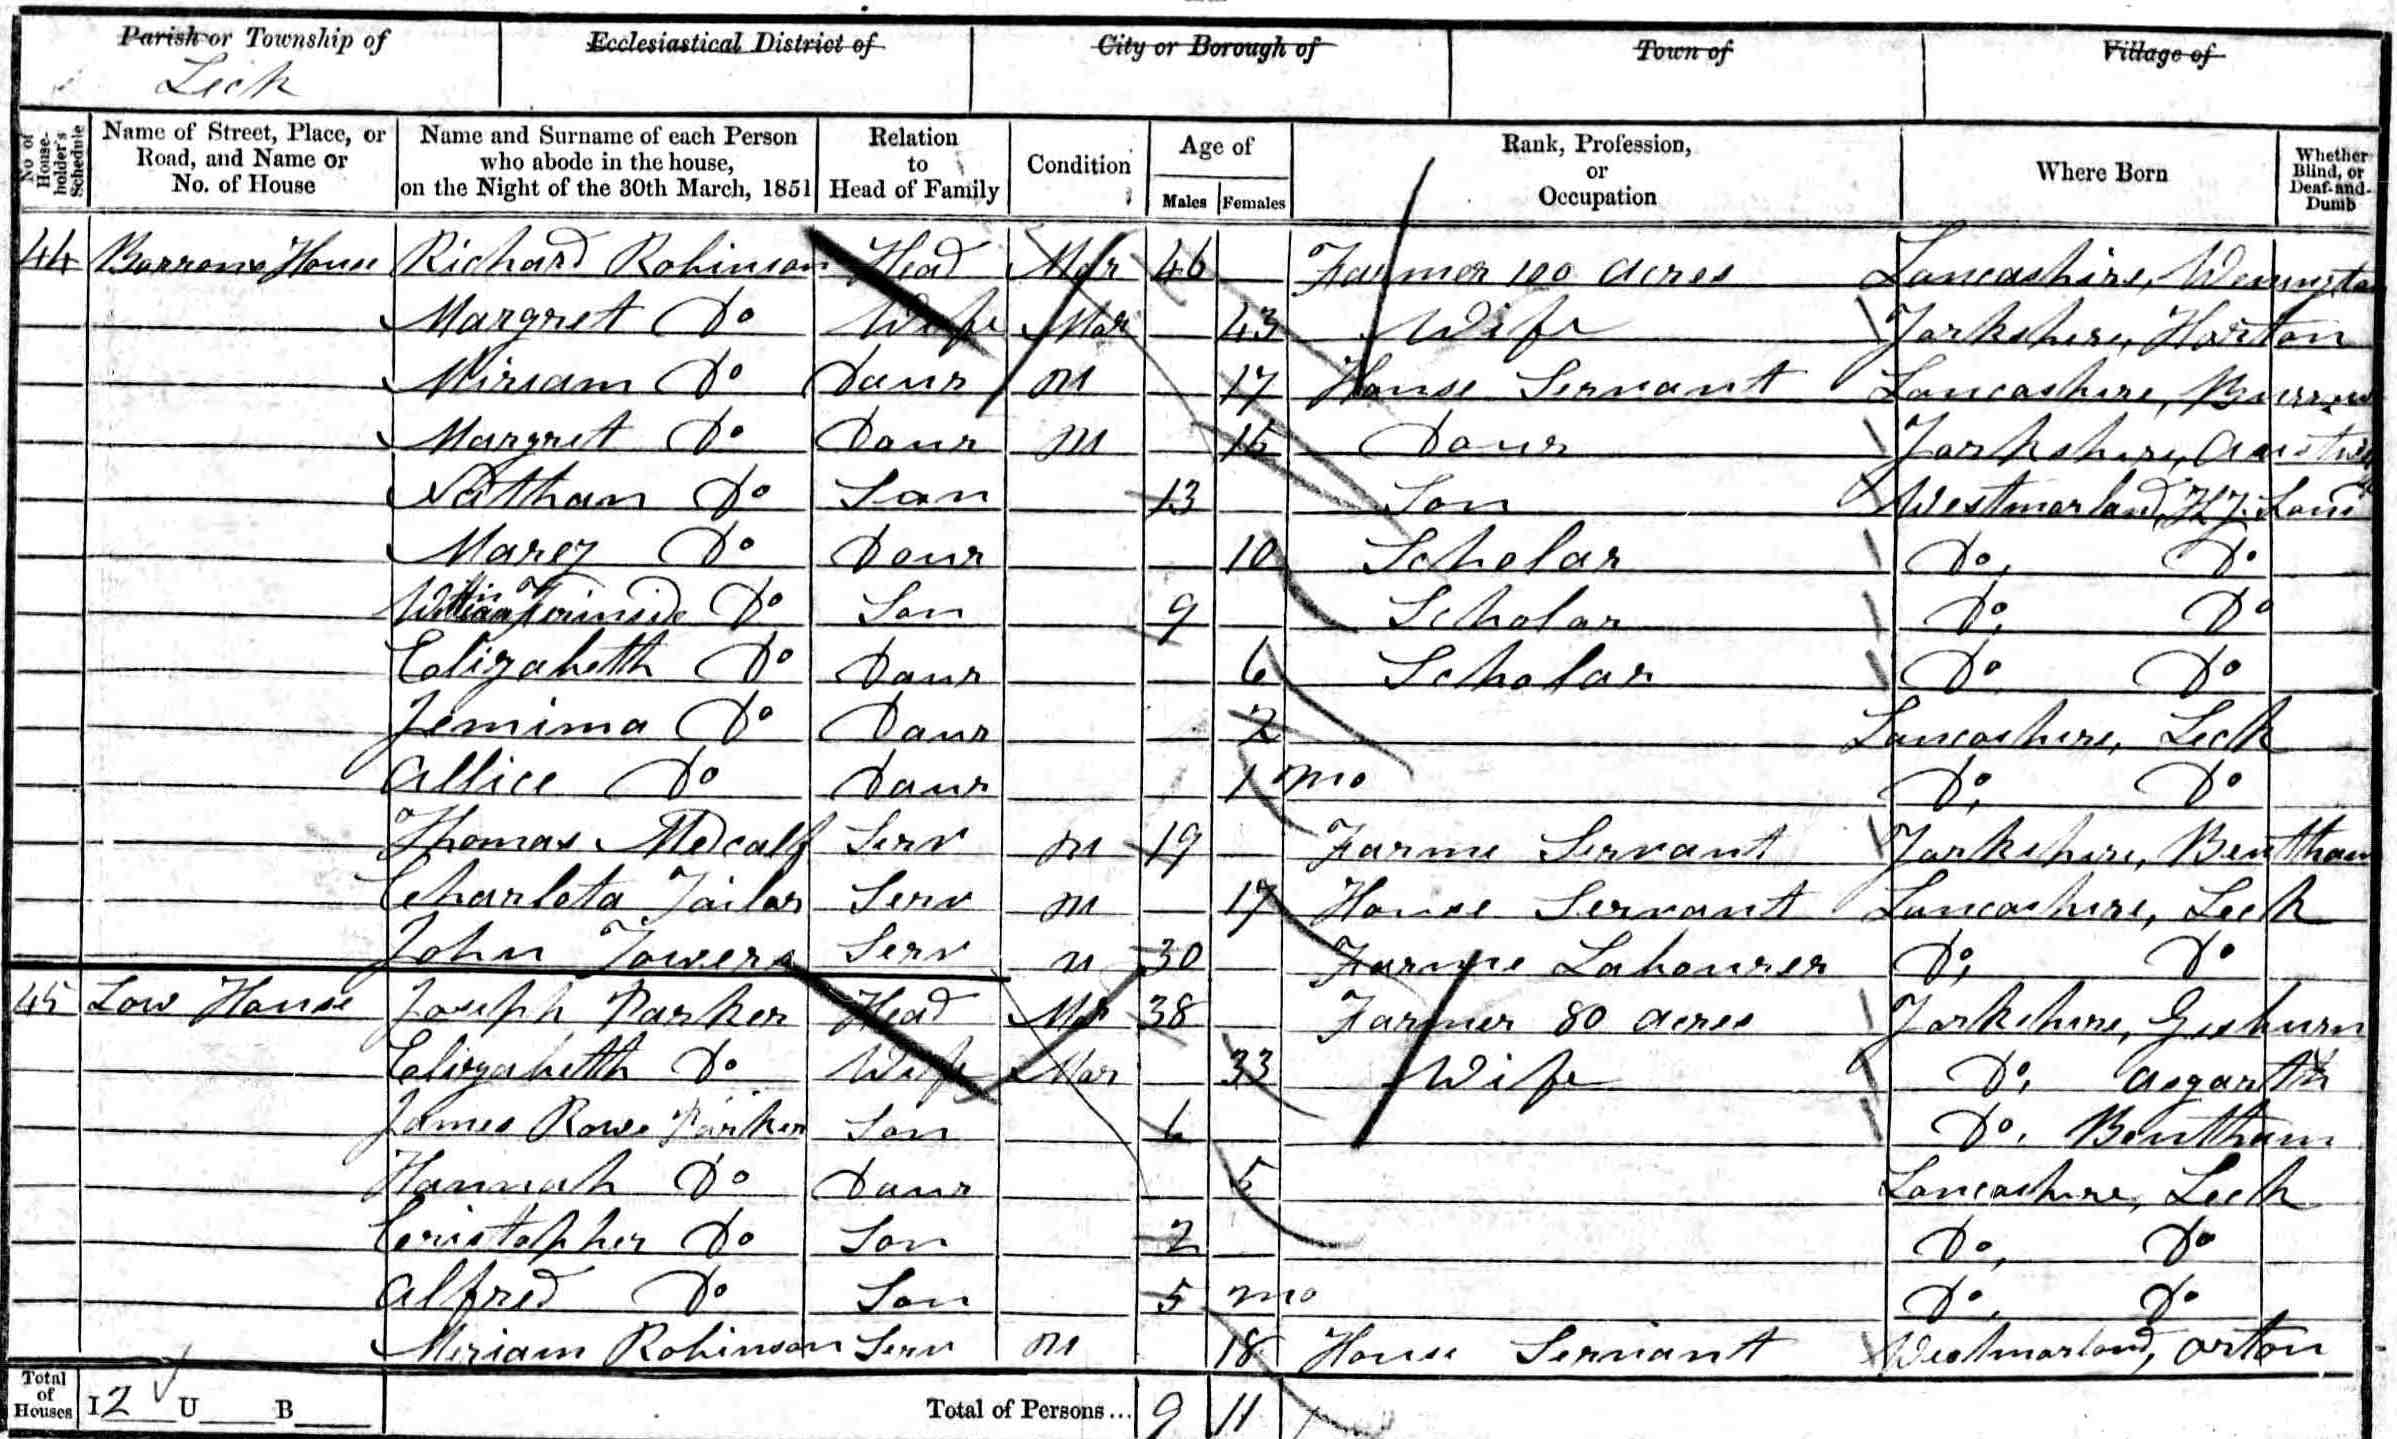 Parish or Township of Ecclesiastical District of City or Borough of Town of Village of
Leck
No of House-holder's Schedule Name of Street, Place, or Road, and Name or No. of House Name and Surname of each Person who abode in the house, on the Night of the 30th March, 1851 Relation to Head of Family Condition Age of Males Females Rank, Profession, or Occupation Where Born Whether Blind, or Deaf-and-Dumb
44 Barrons House Richard Robinson Head Mar 46 Farmer 100 acres Lancashire, Wennington
Margret Do Wife Mar 43 Wife Yorkshire, Horton
Miriam Do Daur 17 House Servant Lancashire, Burrow
Margret Do Daur 15 Daur Yorkshire, Austwick
Nathan Do Son 13 Son Westmorland,
Marey Do Daur 10 Scholar Do, Do
Do Son 9 Scholar Do, Do
Elizabeth Do Daur 6 Scholar Do Do
Jemima Do Daur 2 Lancashire, Leck
Allice Do Daur 1 mo Do, Do
Thomas Medcalf Serv 19 Farme Servant Yorkshire, Bentham
Charlota Tailor Serv 17 House Servant Lancashire, Leck
John Towers Serv 30 Farme Labourer Do, Do
45 Low House Joseph Parker Head Mar 38 Farmer 80 acres Yorkshire, Gisburn
Elizabeth Do Wife Mar 33 Wife Do, Asgarth
James Rowe Parker Son 6 Do, Bentham
Hannah Do Daur 5 Lancashire, Leck
Cristopher Do Son 2 Do, Do
Alfred Do Son 5 mo Do, Do
Miriam Robinson Serv 18 House Servant Westmorland, Orton
Total of Houses I 2 U B Total of Persons... 9 11